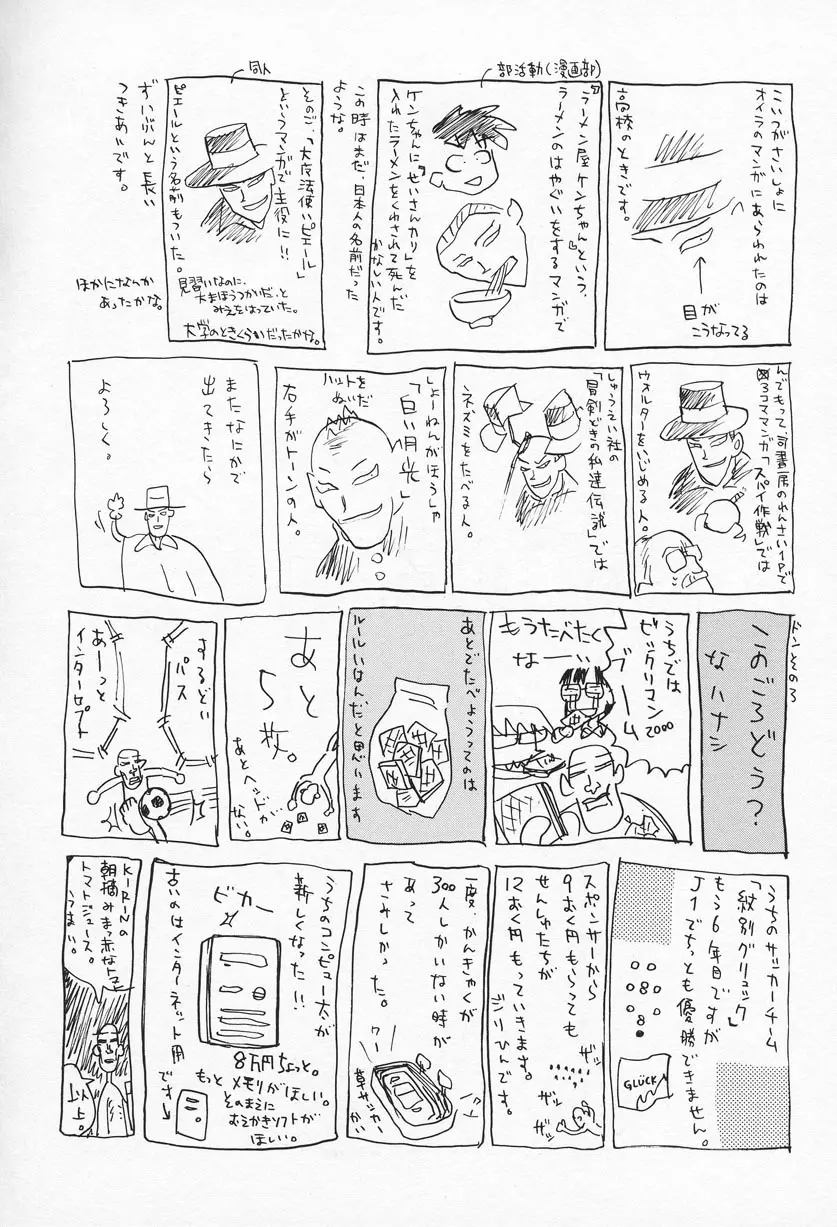 こいつがさいしょに
オイラのマンガにあらわれたのは
高校のときです。
目が
こうなってる
部活動(漫画部)
「ラーメン屋ケンちゃん」という、
ラーメンのはやぐいをするマンガで
ケンちゃんに「せいさんカリ」を
入れたラーメンをくわされて死んだ
かなしい人です。
この時はまだ、日本人の名前だった
ような。
同人
そのご、「大魔法使いピエール」
というマンガで主役に!!
ピエールという名前もついた。
見習いなのに、
大まほうつかいだ、と
みえをはっていた。
大学のときくらいだったかな。
ずいぶんと長い
つきあいです。
ほかになんか
あったかな。
んでもって、司書房のれんさい1Pで
3コママンガ「スパイ作戦」では
ウォルターをいじめる人。
しゅうえい社の
「冒剣どきの私達伝説」では
ネズミをたべる人。
しょーねんがほうしゃ
「白い月光」
ハットを
ぬいだ
右手がトーンの人。
またなにかで
出てきたら
よろしく。
ドンその3
このごろどう?
なハナシ
うちでは
ゼックリコン
2000
ブーム
もうたべたく
なーい
あとでたべようってのは
ルールいはんだと思います
あと
5枚。
あとヘッドが
ない。
するどい
パス
あーっと
インターセプト
うちのサッカーチーム
「紋別グリュック」
もう6年目ですが
J1でちっとも優勝できません。
GLÜCK
スポンサーから
9おく円もらっても
せんしゅたちが
12おく円もっていきます。
ヲリひんです。
ザッ
ザッ
ザッ
一度、かんきゃくが
300人しかいない時が
あって
さみしかった。
ワー
ワー
草サッカー
かい
うちのコンピュー太が
新しくなった!!
ピカー
8万円ちょっと。
もっとメモリがほしい。
そのまえに
おえかきソフトが
ほしい。
古いのはインターネット用
です→
KIRINの
朝摘みまっ赤なトマト
トマトジュース。
うまい。
以上。